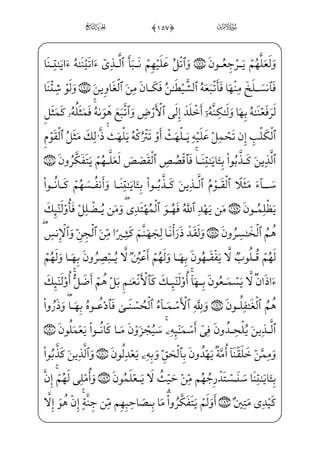 الجزء التاسع ﴿١٥٧﴾ سورة الأعراف
وَلَعَلَّهُمْ يَرْجِعُونَ ۝١٧٤ وَٱتْلُ عَلَيْهِمْ نَبَأَ ٱلَّذِىٓ ءَاتَيْنَٰهُ ءَايَٰتِنَا
فَٱنسَلَخَ مِنْهَا فَأَتْبَعَهُ ٱلشَّيْطَٰنُ فَكَانَ مِنَ ٱلْغَاوِينَ ۝١٧٥ وَلَوْ شِئْنَا
لَرَفَعْنَٰهُ بِهَا وَلَٰكِنَّهُۥٓ أَخْلَدَ إِلَى ٱلْأَرْضِ وَٱتَّبَعَ هَوَىٰهُ ۚ فَمَثَلُهُۥ كَمَثَلِ
ٱلْكَلْبِ إِن تَحْمِلْ عَلَيْهِ يَلْهَثْ أَوْ تَتْرُكْهُ يَلْهَث ۚ ذَّٰلِكَ مَثَلُ ٱلْقَوْمِ
ٱلَّذِينَ كَذَّبُوا۟ بِـَٔايَٰتِنَا ۚ فَٱقْصُصِ ٱلْقَصَصَ لَعَلَّهُمْ يَتَفَكَّرُونَ ۝١٧٦
سَآءَ مَثَلًا ٱلْقَوْمُ ٱلَّذِينَ كَذَّبُوا۟ بِـَٔايَٰتِنَا وَأَنفُسَهُمْ كَانُوا۟
يَظْلِمُونَ ۝١٧٧ مَن يَهْدِ ٱللَّهُ فَهُوَ ٱلْمُهْتَدِى ۖ وَمَن يُضْلِلْ فَأُو۟لَٰٓئِكَ
هُمُ ٱلْخَٰسِرُونَ ۝١٧٨ وَلَقَدْ ذَرَأْنَا لِجَهَنَّمَ كَثِيرًا مِّنَ ٱلْجِنِّ وَٱلْإِنسِ ۖ
لَهُمْ قُلُوبٌ لَّا يَفْقَهُونَ بِهَا وَلَهُمْ أَعْيُنٌ لَّا يُبْصِرُونَ بِهَا وَلَهُمْ
ءَاذَانٌ لَّا يَسْمَعُونَ بِهَآ ۚ أُو۟لَٰٓئِكَ كَٱلْأَنْعَٰمِ بَلْ هُمْ أَضَلُّ ۚ أُو۟لَٰٓئِكَ
هُمُ ٱلْغَٰفِلُونَ ۝١٧٩ وَلِلَّهِ ٱلْأَسْمَآءُ ٱلْحُسْنَىٰ فَٱدْعُوهُ بِهَا ۖ وَذَرُوا۟
ٱلَّذِينَ يُلْحِدُونَ فِىٓ أَسْمَٰٓئِهِۦ ۚ سَيُجْزَوْنَ مَا كَانُوا۟ يَعْمَلُونَ ۝١٨٠
وَمِمَّنْ خَلَقْنَآ أُمَّةٌ يَهْدُونَ بِٱلْحَقِّ وَبِهِۦ يَعْدِلُونَ ۝١٨١ وَٱلَّذِينَ كَذَّبُوا۟
بِـَٔايَٰتِنَا سَنَسْتَدْرِجُهُم مِّنْ حَيْثُ لَا يَعْلَمُونَ ۝١٨٢ وَأُمْلِى لَهُمْ ۚ إِنَّ
كَيْدِى مَتِينٌ ۝١٨٣ أَوَلَمْ يَتَفَكَّرُوا۟ ۗ مَا بِصَاحِبِهِم مِّن جِنَّةٍ ۚ إِنْ هُوَ إِلَّا